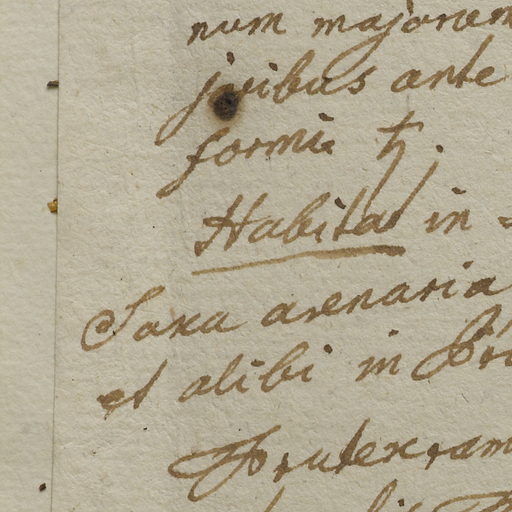 num majorem
joribus ante
formis ♄.
Habitat in
Saxa arenaria
et alibi in
Frutex, ram